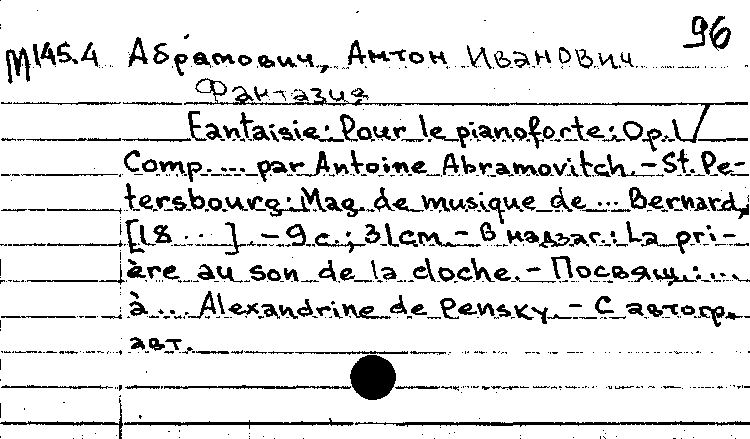 96
М145.4 Абрамович, Антон Иванович
Фантазия
Fantaisie: Pour le pianoforte: Op.1 /
Comp. ... par Antoine Abramovitch. - St. Pe-
tersbourg: Mag. de musique de ... Bernard,
[18 ...]. - 9 с.; 31 cm. - В надзаг.: La pri-
ère au son de la cloche. - Посвящ.: ...
à ... Alexandrine de Pensky. - С автогр.
авт.